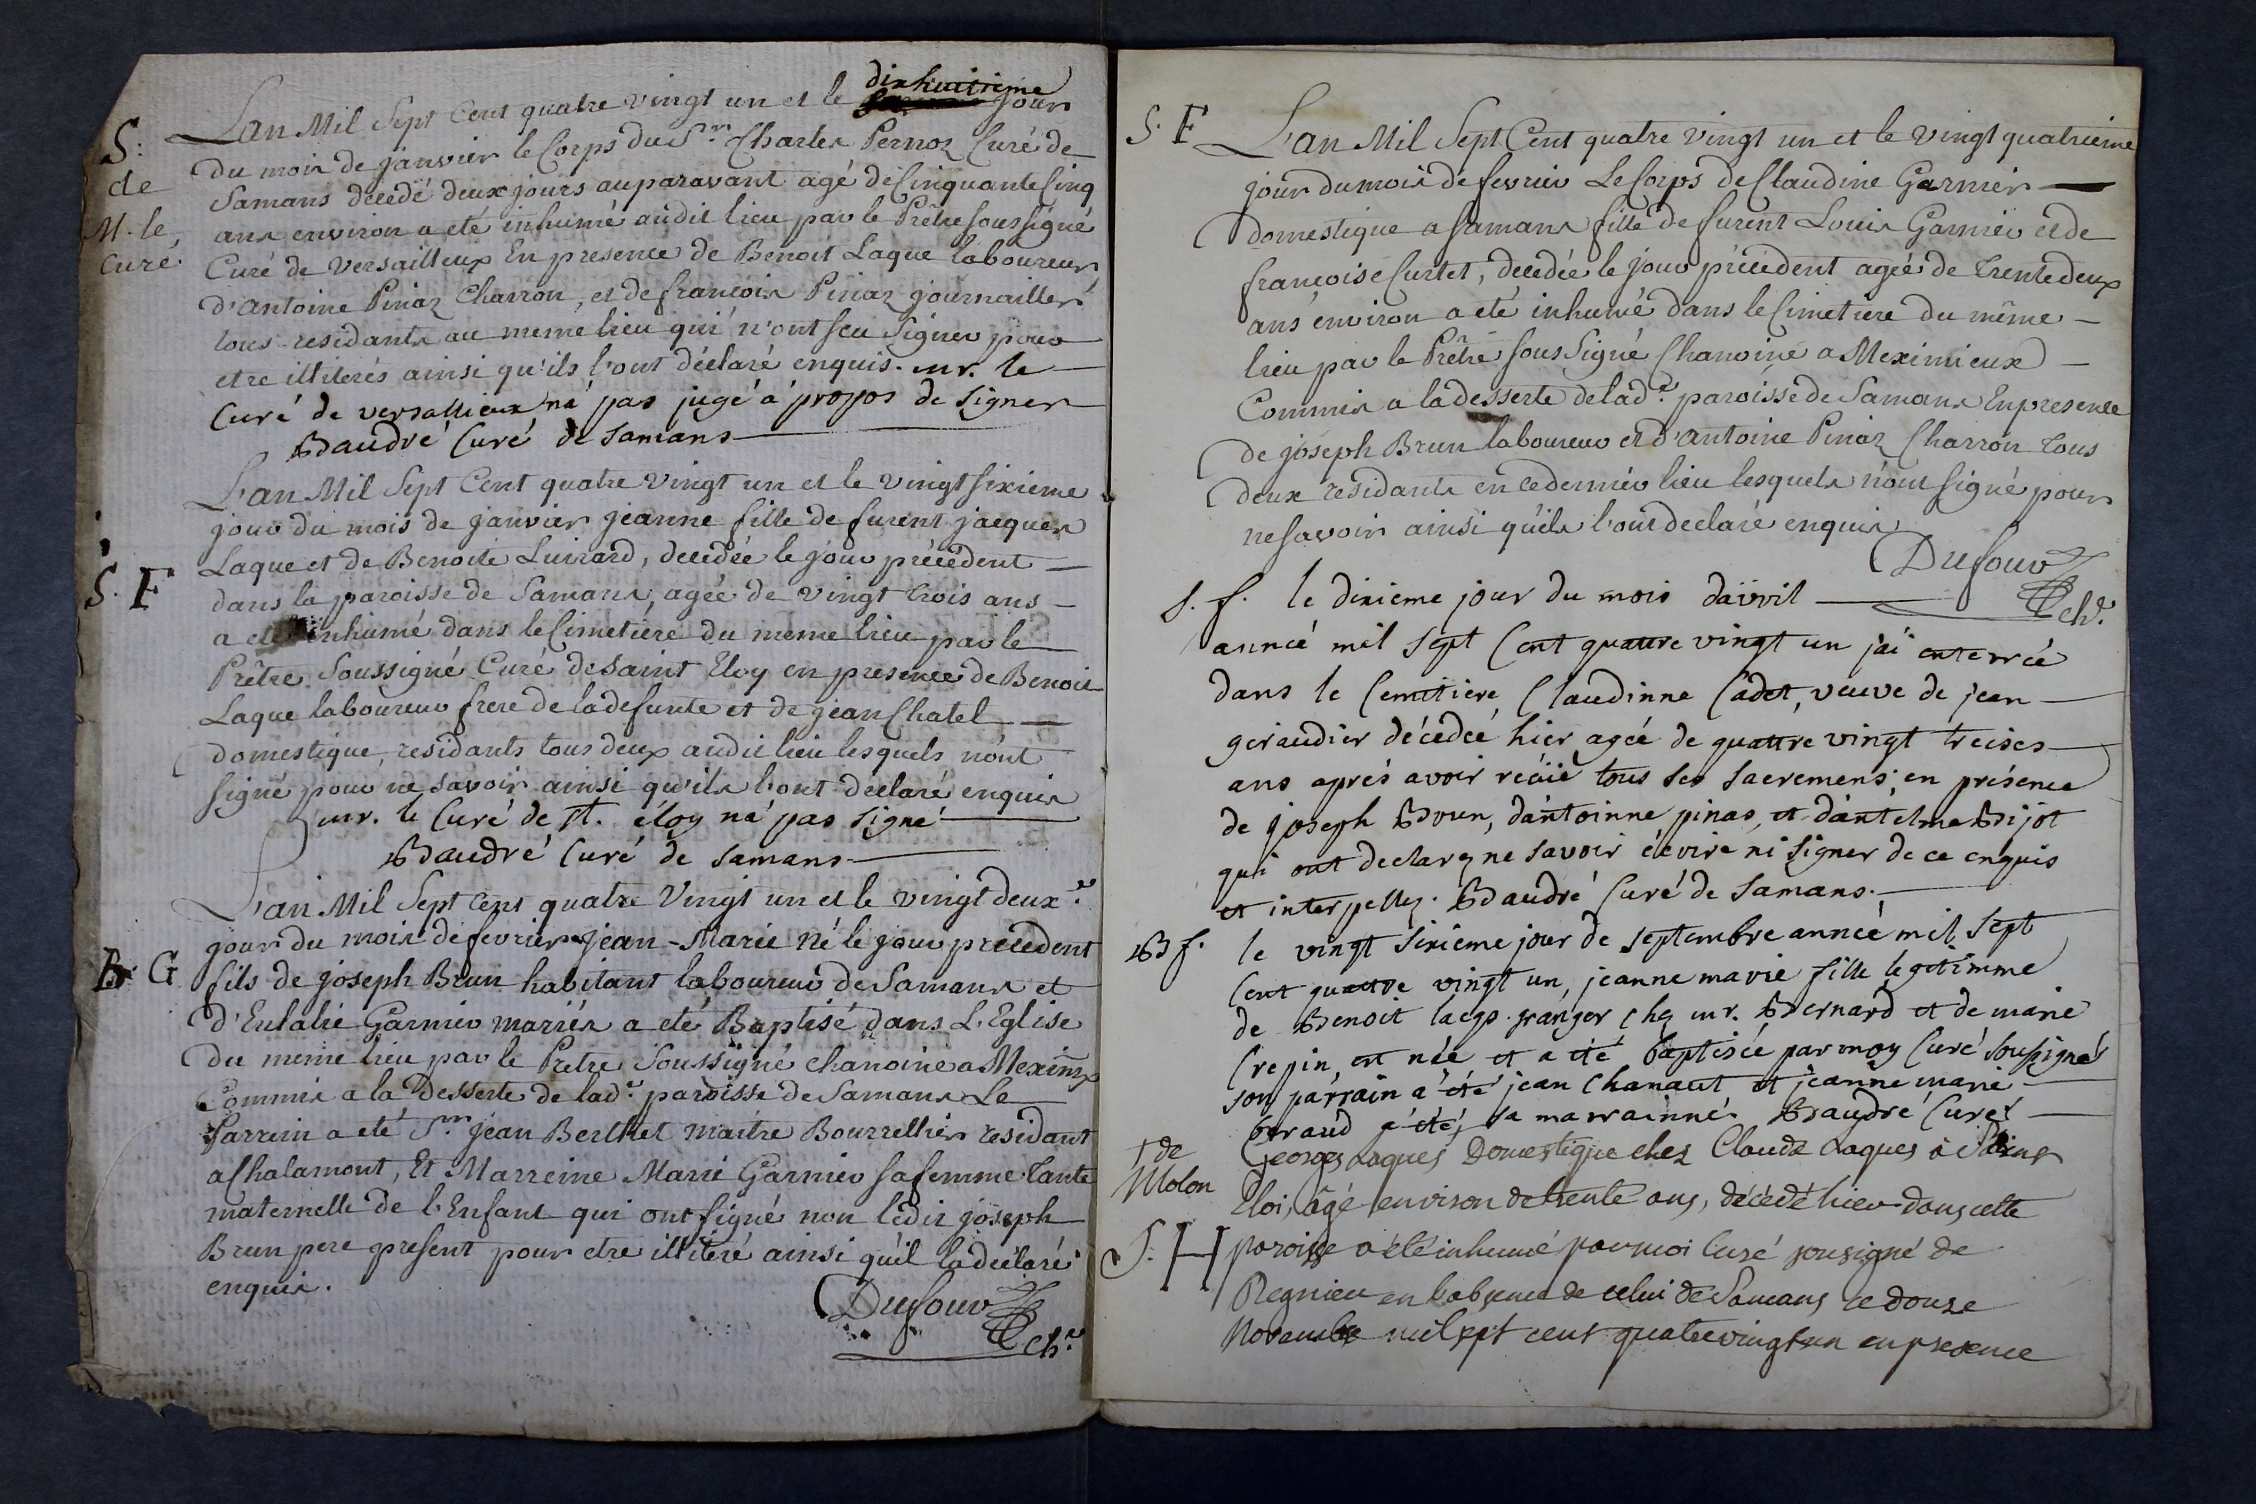 S:
de
M. le
Curé.
Lan Mil Sept Cent quatre vingt un et le dixhuitieme jour
du mois de janvier le Corps du Sr. Charles Pernoz Curé de
Samans decedé deux jours auparavant agé de Cinquante Cinq
ans environ a eté inhumé audit lieu par le Prêtre soussigné
Curé de Versailleux En presence de Benoit Laque laboureur
d'Antoine Pinaz Charron, et de francois Pinaz journailler
tous residants au meme lieu qui n'ont sçu signer pour
etre illiterés ainsi qu'ils l'ont déclaré enquis. mr. le
Curé de versallieux n'á pas jugé á propos de signer
Baudré Curé de Samans
S. F
L'an Mil Sept Cent quatre vingt un et le vingt sixieme
jour du mois de janvier jeanne fille de furent jacques
Laque et de Benoite Luirard, decedée le jour précédent
dans la paroisse de Samans, agée de vingt trois ans
a eté inhumé dans le Cimetiere du meme lieu par le
Prêtre Soussigné Curé de Saint Eloy en presence de Benoit
Laque laboureur frere de la defunte et de jean Chatel
domestique, residants tous deux audit lieu lesquels n'ont
signé pour ne savoir ainsi qu'ils l'ont declaré enquis
mr. le Curé de st. éloy ná pas signé
Baudré Curé de Samans
B. G
L'an Mil Sept Cent quatre Vingt un et le vingt deuxe.
jour du mois de fevrier jean-Marie Né le jour precedent
fils de joseph Brun habitant laboureur de Samans et
d'Eulalie Garnier mariés a eté Baptisé dans L'Eglise
du meme lieu par le Prêtre Soussigné chanoine a Meximx
Commis a la desserte de lade. paroisse de Samans Le
Parrein a eté Sr. jean Berthet maitre Bourrellier residant
a Chalamont, Et Marreine Marie Garnier sa femme tante
maternelle de l'Enfant qui ont signé non ledit joseph
Brun pere present pour etre illiteré ainsi qu'il la declaré
enquis.
Dufour
che.
S. F
L'an Mil Sept Cent quatre vingt un et le vingt quatrieme
jour du mois de fevrier Le Corps de Claudine Garnier
domestique a Samans fille de furent Louis Garnier et de
françoise Curtet, decedée le jour précédent agée de trente deux
ans environ a eté inhumé dans le Cimetiere du même
lieu par le Prêtre sous Signé Chanoine a Meximieux
Commis a la desserte de lade. paroisse de Samans En presence
de joseph Brun laboureur et d'Antoine Pinaz Charron tous
deux residants en ce dernier lieu lesquels n'ont signé pour
ne savoir ainsi qu'ils l'ont declaré enquis
Dufour
che.
S. f. le dixieme jour du mois d'avril
anneé mil sept Cent quattre vingt un j'ai enterreé
dans le Cemitiere, Claudinne Cadet, veuve de jean
geraudier décedeé hier ageé de quattre vingt treises
ans aprés avoir recüe tous ses sacremens, en présence
de joseph Brun, d'antoinne pinas, et d'antelme Bijot
qui ont declarez ne savoir écrire ni signer de ce enquis
et interpellez. Baudré Curé de Samans.
B f. le vingt sixieme jour de septembre anneé mil sept
Cent quattre vingt un, jeanne marie fille legitimme
de Benoit laqs. granger chez mr. Bernard et de marie
Crepin, est née et a eté baptisée par moy Curé sousigné
son parrain a été jean Chanaut et jeanne marie
beraud a été, sa marrainné. Baudré Curé
+ de
Molon
S. H
Georges Laques Domestique chez Claude Laques à Saint
Eloi, agé environ de trente ans, décédé hier dans cette
paroisse a été inhumé par moi Curé sousigné de
Regnieu en l'absence de celui de Samans ce douze
Novembre mil sept cent quatre vingt un en presence